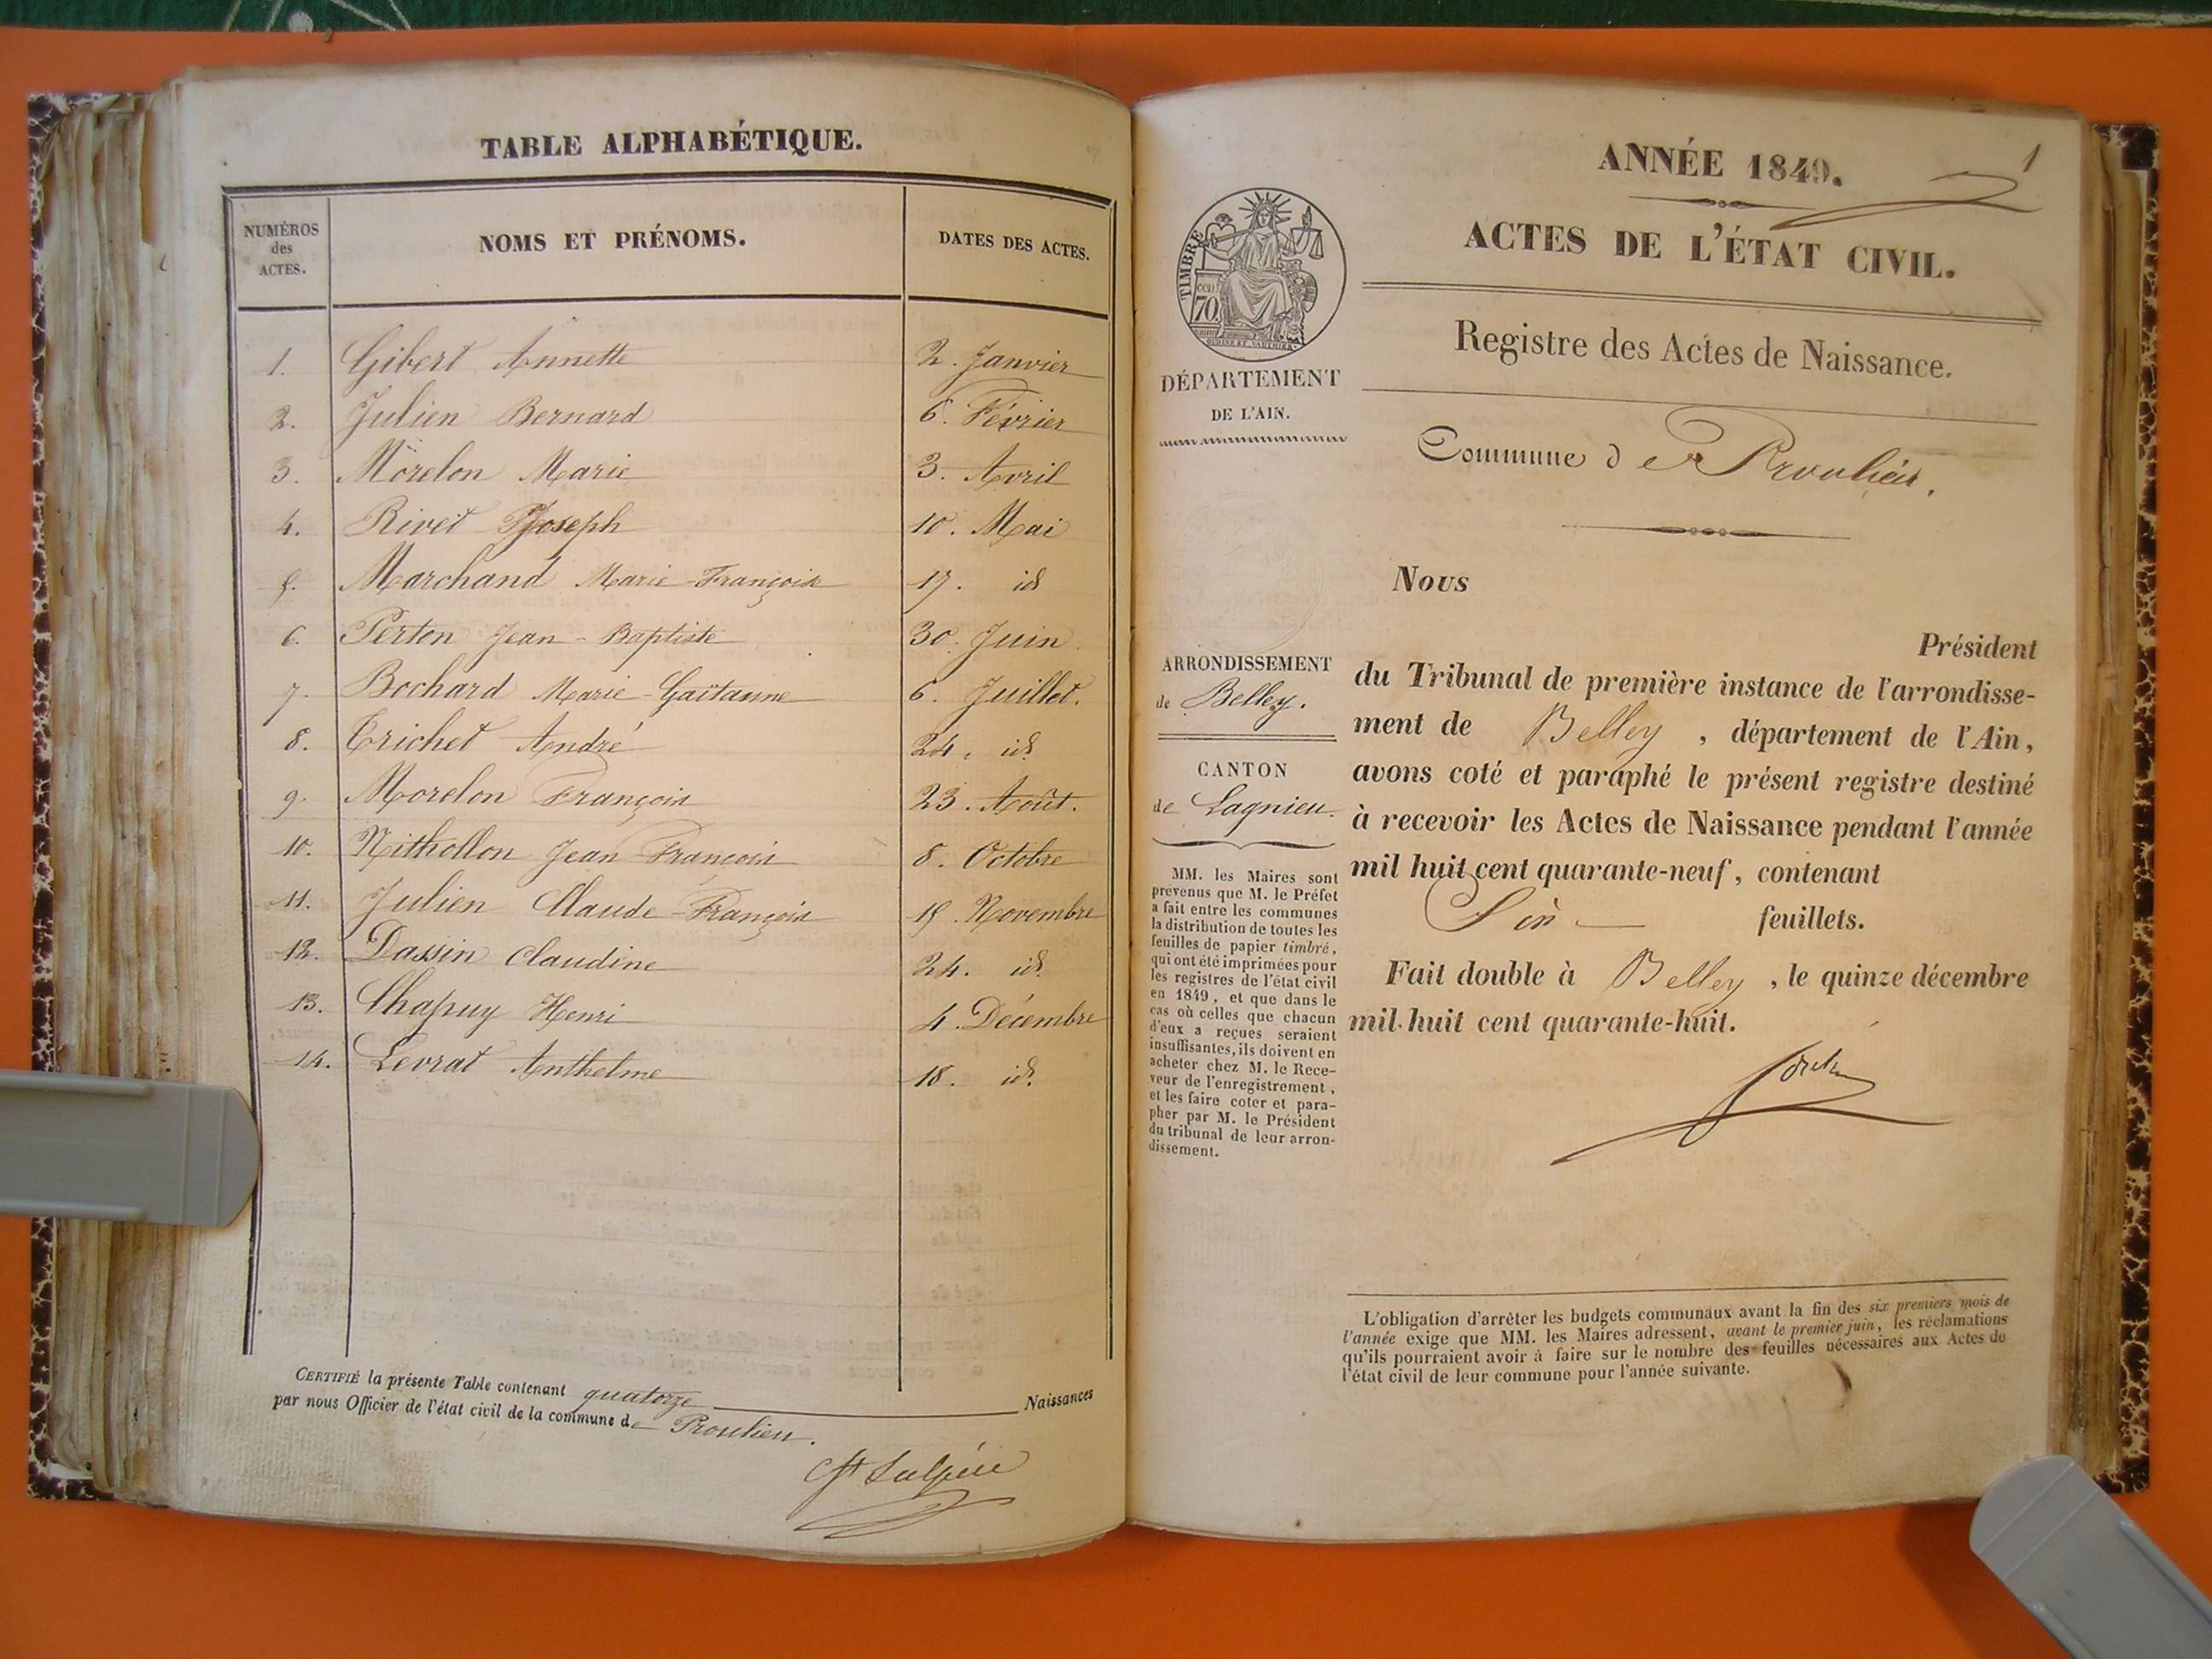 TABLE ALPHABÉTIQUE.
NUMÉROS
des
ACTES.
NOMS ET PRÉNOMS.
DATES DES ACTES.
1. Gibert Annette 2. Janvier
2. Julien Bernard 6. Février
3. Morelon Marie 3. Avril
4. Rivet Joseph 10. Mai
5. Marchand Marie-François 17. id
6. Perton Jean-Baptiste 30. Juin
7. Bochard Marie-Gaëtanne 6. Juillet.
8. Trichet André 24. id.
9. Morelon François 23. Août.
10. Nithollon Jean-François 8. Octobre
11. Julien Claude-François 15. Novembre
12. Dassin Claudine 24. id.
13. Chapuy Henri 4. Décembre
14. Levrat Anthelme 18. id.
CERTIFIÉ la présente Table contenant quatorze Naissances
par nous Officier de l'état civil de la commune de Proulieu.
St Sulpice
1
ANNÉE 1849.
ACTES DE L'ÉTAT CIVIL.
Registre des Actes de Naissance.
TIMBRE
CEN
70
DÉPARTEMENT
DE L'AIN.
Commune de Proulieu.
Nous
Président
du Tribunal de première instance de l'arrondisse-
ment de Belley, département de l'Ain,
avons coté et paraphé le présent registre destiné
à recevoir les Actes de Naissance pendant l'année
mil huit cent quarante-neuf, contenant
Six feuillets.
Fait double à Belley, le quinze décembre
mil huit cent quarante-huit.
ARRONDISSEMENT
de Belley.
CANTON
de Lagnieu.
MM. les Maires sont
prévenus que M. le Préfet
a fait entre les communes
la distribution de toutes les
feuilles de papier timbré,
qui ont été imprimées pour
les registres de l'état civil
en 1849, et que dans le
cas où celles que chacun
d'eux a reçues seraient
insuffisantes, ils doivent en
acheter chez M. le Rece-
veur de l'enregistrement,
et les faire coter et para-
pher par M. le Président
du tribunal de leur arron-
dissement.
L'obligation d'arrêter les budgets communaux avant la fin des six premiers mois de
l'année exige que MM. les Maires adressent, avant le premier juin, les réclamations
qu'ils pourraient avoir à faire sur le nombre des feuilles nécessaires aux Actes de
l'état civil de leur commune pour l'année suivante.